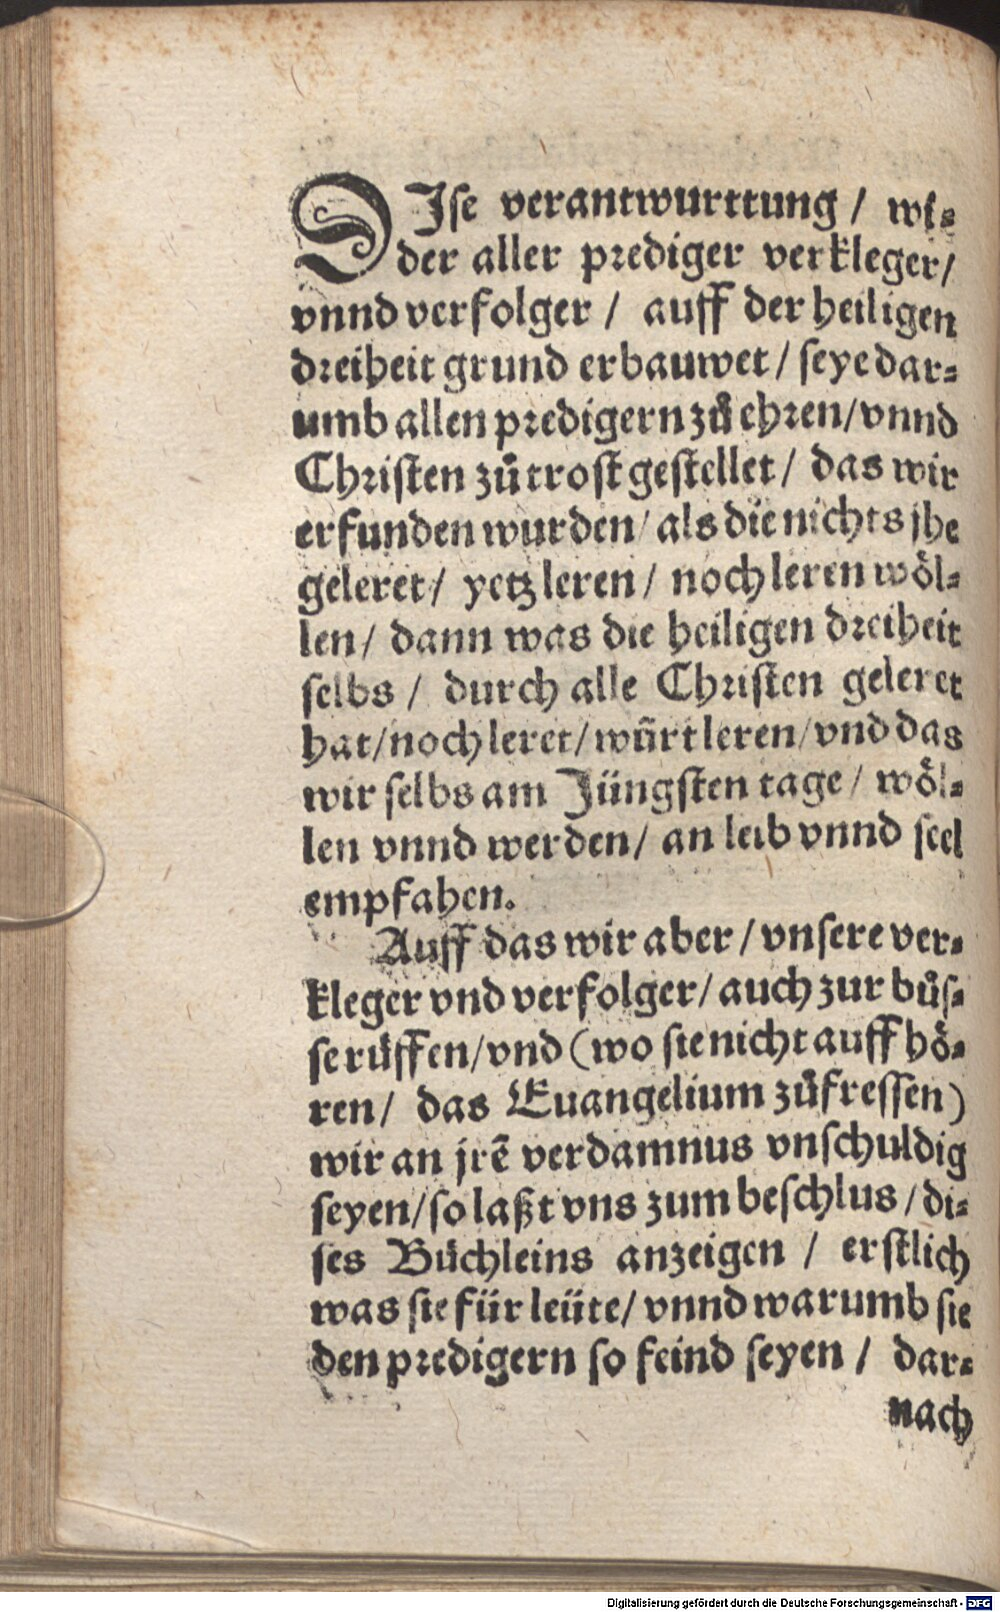 DIse verantwurttung / wi⸗
der aller prediger verkleger/
vnnd verfolger / auff der heiligen
dreiheit grund erbauwet / seye dar⸗
umb allen predigern zů ehren/vnnd
Christen zů trost gestellet / das wir
erfunden wurden/ als die nichts jhe
geleret / yetz leren / noch leren wöl⸗
len / dann was die heiligen dreiheit
selbs / durch alle Christen geleret
hat/noch leret/würt leren/vnd das
wir selbs am Jüngsten tage / wöl⸗
len vnnd werden / an leib vnnd seel
empfahen.
Auff das wir aber / vnsere ver⸗
kleger vnd verfolger / auch zur bůs⸗
se růffen/vnd (wo sie nicht auff hö⸗
ren / das Euangelium zůfressen)
wir an jrē verdamnus vnschuldig
seyen/so laßt vns zum beschlus / di⸗
ses Büchleins anzeigen / erstlich
was sie für leüte/ vnnd warumb sie
den predigern so feind seyen / dar⸗
nach
Digitalisierung gefördert durch die Deutsche Forschungsgemeinschaft - DFG